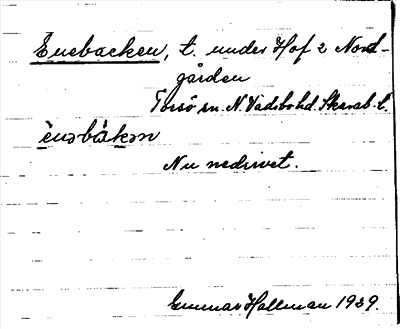 Enebacken, t. under Hof 2 Nord-
gården
Torsö sn. N. Vadsbo hd. Skarab. l.
ènəbàkən
Nu nedrivet.
Gunnar Hallman 1939.